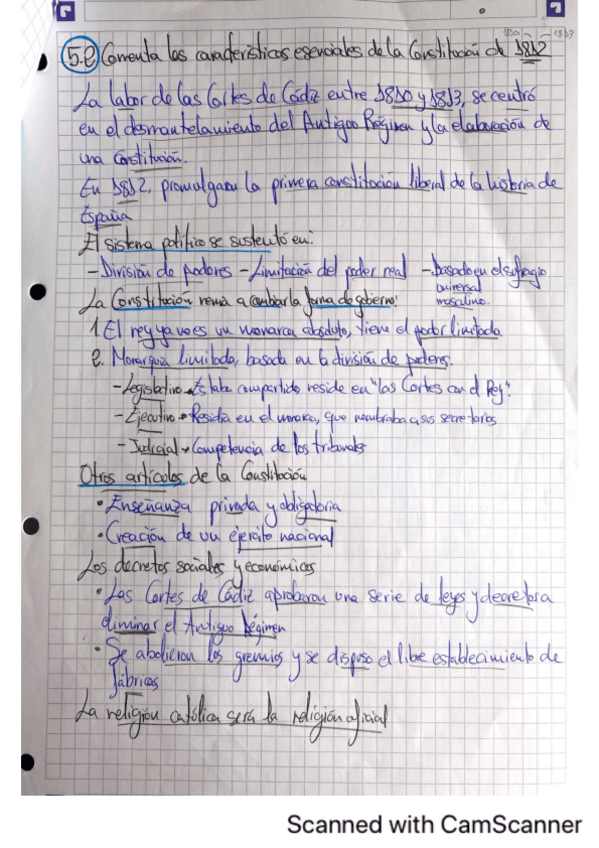 1810 - 1813
5.2 Comenta las características esenciales de la Constitución de 1812
La labor de las Cortes de Cádiz entre 1810 y 1813, se centró
en el desmantelamiento del Antiguo Régimen y la elaboración de
una Constitución.
En 1812, promulgaron la primera constitución liberal de la historia de
España
El sistema político se sustentó en:
-División de poderes -Limitación del poder real -basado en el sufragio
universal
masculino.
La Constitución a cambiar la forma de gobierno:
1. El rey ya no es un monarca absoluto, tiene el poder limitado
2. Monarquía limitada, basada en la división de poderes.
-Legislativo → Estaba compartido reside en "las Cortes con el Rey".
-Ejecutivo → Residía en el monarca, que nombraba a sus secretarios
-Judicial → Competencia de los tribunales
Otros artículos de la Constitución
• Enseñanza privada y obligatoria
• Creación de un ejército nacional
Los decretos sociales y económicos
• Las Cortes de Cádiz aprobaron una serie de leyes y decretos a
eliminar el Antiguo Régimen
• Se abolieron los gremios y se dispuso el libre establecimiento de
fábricas
La religión católica será la religión oficial
Scanned with CamScanner